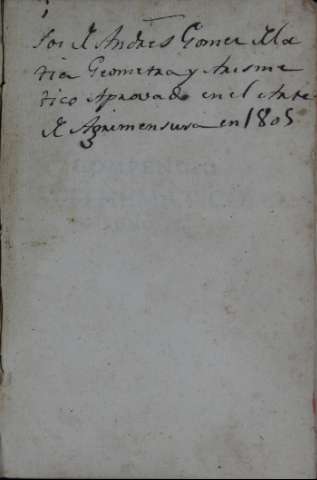 Soi D. Andres Gomez Ma
tia Geometra y Arisme
tico Aprovado en el Arte
D Agrimensura en 1805
COMPENDIO